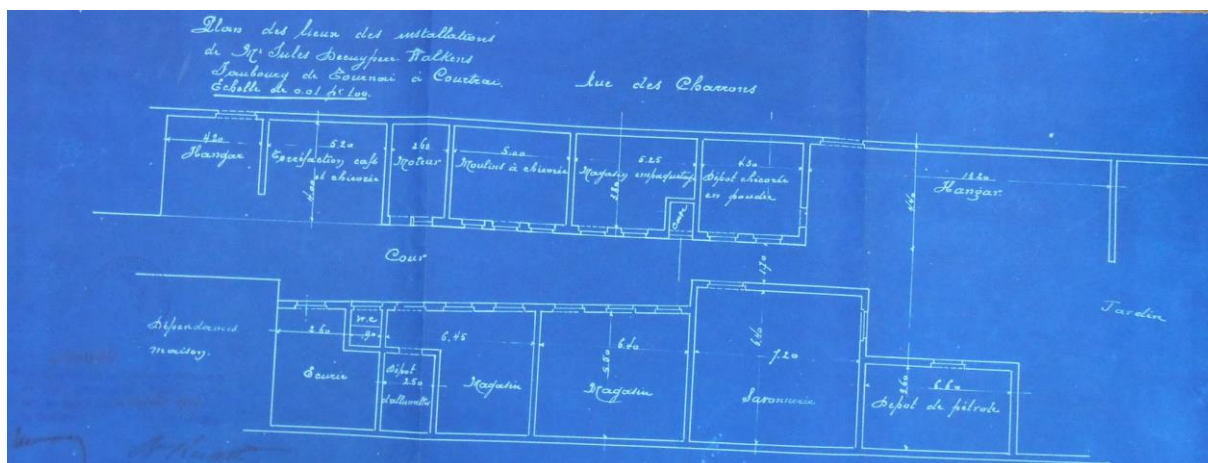 Plan des lieux des installations
de Mr Jules Decuypere Halkens
Faubourg de Tournai à Courtrai.
Echelle de 0.01 pr 1.00.
Rue des Charrons
4.20
Hangar
5.20
Torréfaction café
et chicorée
4.00
2.60
Moteur
5.00
Moulins à chicorée
5.25
Magasin empaquetage
3.80
4.50
Dépot chicorée
en poudre
12.20
Hangar
4.40
Cour
1.70
Jardin
Dépendances
maison.
2.60
W.C
.90
Ecurie
Dépot
2.50
d'allumettes
6.45
Magasin
6.40
5.50
Magasin
6.40
7.20
Savonnerie
3.60
6.60
Dépot de pétrole